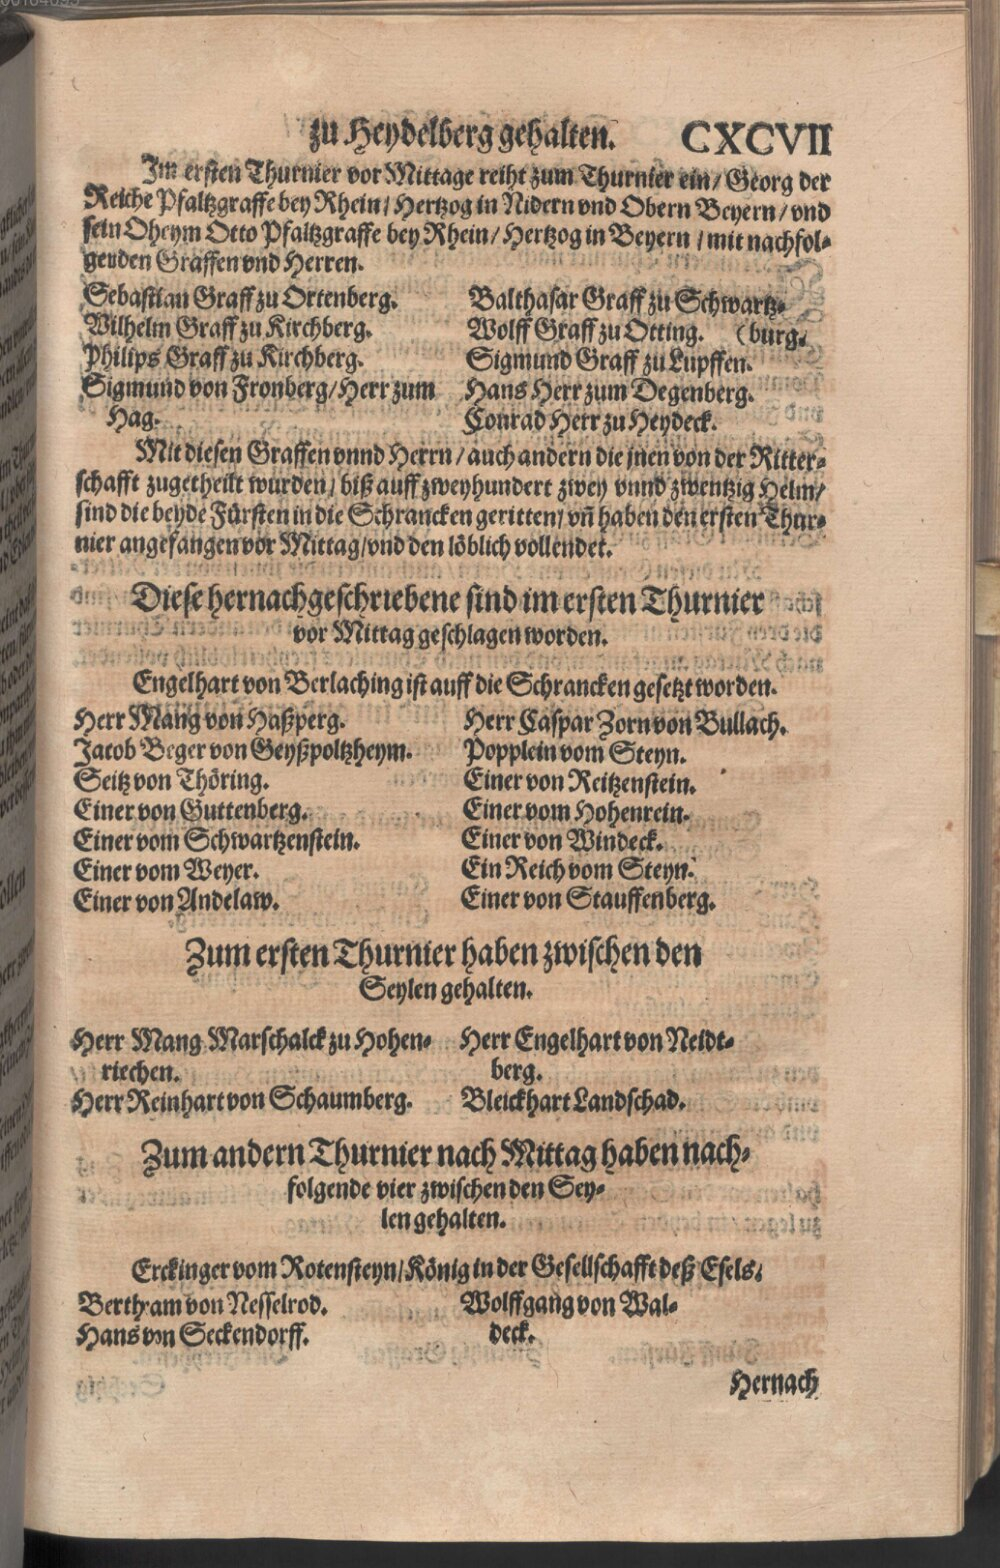 zu Heydelberg gehalten. CXCVII
Im ersten Thurnier vor Mittage reiht zum Thurnier ein / Georg der
Reiche Pfaltzgraffe bey Rhein / Hertzog in Nidern vnd Obern Beyern / vnd
sein Oheym Otto Pfaltzgraffe bey Rhein / Hertzog in Beyern / mit nachfol-
genden Graffen vnd Herren.
Sebastian Graff zu Ortenberg.
Wilhelm Graff zu Kirchberg.
Philips Graff zu Kirchberg.
Sigmund von Fronberg / Herr zum
Hag.
Balthasar Graff zu Schwartz-
Wolff Graff zu Otting. (burg.
Sigmund Graff zu Lupffen.
Hans Herr zum Degenberg.
Conrad Herr zu Heydeck.
Mit diesen Graffen vnnd Herrn / auch andern die jnen von der Ritter-
schafft zugetheilt wurden / biß auff zweyhundert zwey vnnd zwentzig Helm /
sind die beyde Fürsten in die Schrancken geritten / vñ haben den ersten Thur-
nier angefangen vor Mittag / vnd den löblich vollendet.
Diese hernachgeschriebene sind im ersten Thurnier
vor Mittag geschlagen worden.
Engelhart von Berlaching ist auff die Schrancken gesetzt worden.
Herr Mang von Haßperg.
Jacob Beger von Geyßpoltzheym.
Seitz von Thöring.
Einer von Guttenberg.
Einer vom Schwartzenstein.
Einer vom Weyer.
Einer von Andelaw.
Herr Caspar Zorn von Bullach.
Popplein vom Steyn.
Einer von Reitzenstein.
Einer vom Hohenrein.
Einer von Windeck.
Ein Reich vom Steyn.
Einer von Stauffenberg.
Zum ersten Thurnier haben zwischen den
Seylen gehalten.
Herr Mang Marschalck zu Hohen-
riechen.
Herr Reinhart von Schaumberg.
Herr Engelhart von Neidt-
berg.
Bleickhart Landschad.
Zum andern Thurnier nach Mittag haben nach-
folgende vier zwischen den Sey-
len gehalten.
Erckinger vom Rotensteyn / König in der Gesellschafft deß Esels.
Berthram von Nesselrod.
Hans von Seckendorff.
Wolffgang von Wal-
deck.
Hernach